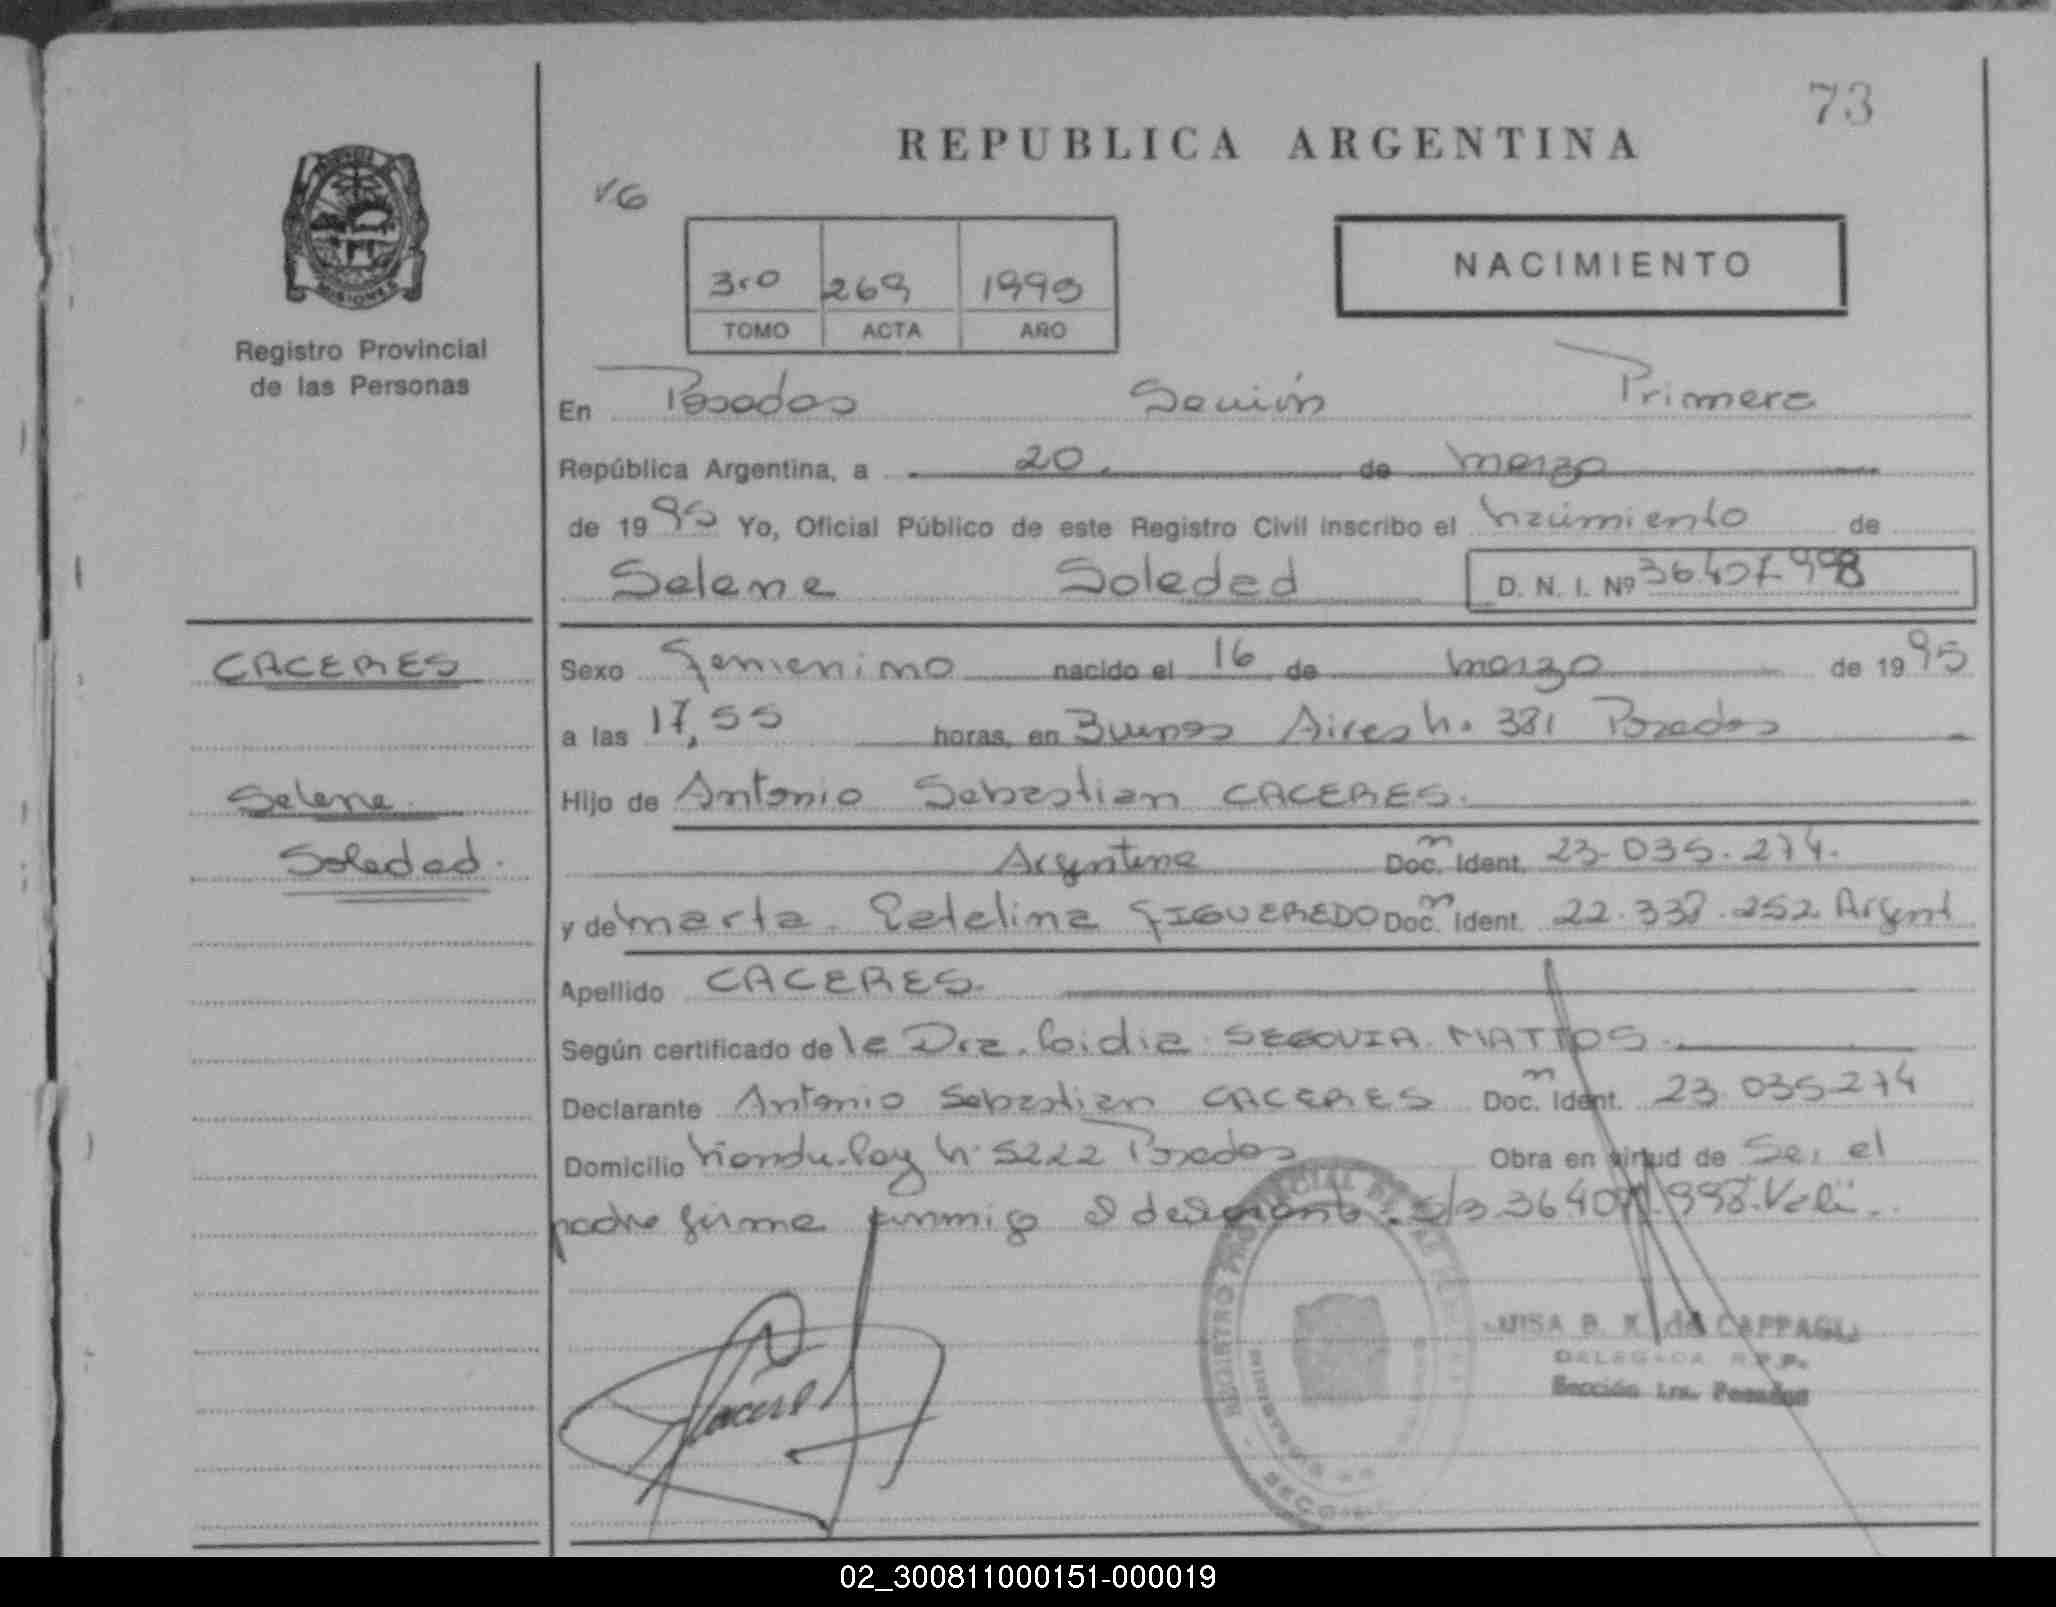 73
REPUBLICA ARGENTINA
MISIONES
Registro Provincial
de las Personas
3ro 269 1995
TOMO ACTA AÑO
NACIMIENTO
En Posadas Sección Primera
República Argentina, a 20 de marzo
de 1995 Yo, Oficial Público de este Registro Civil inscribo el nacimiento de
Selene Soledad D. N. I. Nº 36.407.998
CACERES
Selene
Soledad
Sexo Femenino nacido el 16 de marzo de 1995
a las 17,55 horas, en Buenos Aires N. 381 Posadas
Hijo de Antonio Sebastian CACERES.
Argentina Doc. Ident. 23.035.274.
y de Marta Catalina FIGUEREDO Doc. Ident. 22.338.252 Argent
Apellido CACERES.
Según certificado de la Dra. Lidia SEGOVIA MATTOS.
Declarante Antonio Sebastian CACERES Doc. Ident. 23.035.274
Domicilio Ñandu-Pay N. 5222 Posadas Obra en virtud de Ser el
padre firma conmigo el declarante. S/B 36407.998.
Caceres
REGISTRO PROVINCIAL DE LAS
LUISA B. K. de CAPPAGLI
DELEGADA R.P.P.
Sección 1ra. Posadas
02_300811000151-000019